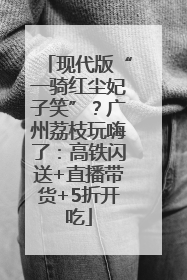 「现代版“
一骑红尘妃
子笑”？广
州荔枝玩嗨
了：高铁闪
送+直播带
货+5折开
吃」